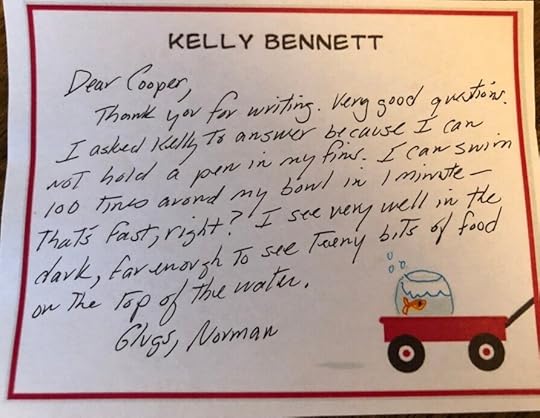 KELLY BENNETT
Dear Cooper,
Thank you for writing. Very good questions.
I asked Kelly To answer because I can
not hold a pen in my fins. I can swim
100 times around my bowl in 1 minute—
That's fast, right? I see very well in the
dark, far enough to see Teeny bits of food
on The Top of The water.
Glugs, Norman